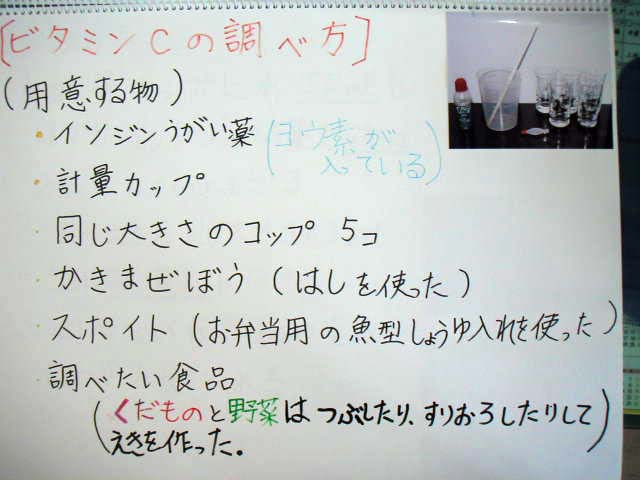 [ビタミンCの調べ方]
(用意する物)
・イソジンうがい薬 (ヨウ素が
入っている)
・計量カップ
・同じ大きさのコップ 5コ
・かきまぜぼう (はしを使った)
・スポイト (お弁当用の魚型しょうゆ入れを使った)
・調べたい食品
(くだものと野菜は つぶしたり、すりおろしたりして
えきを作った。)